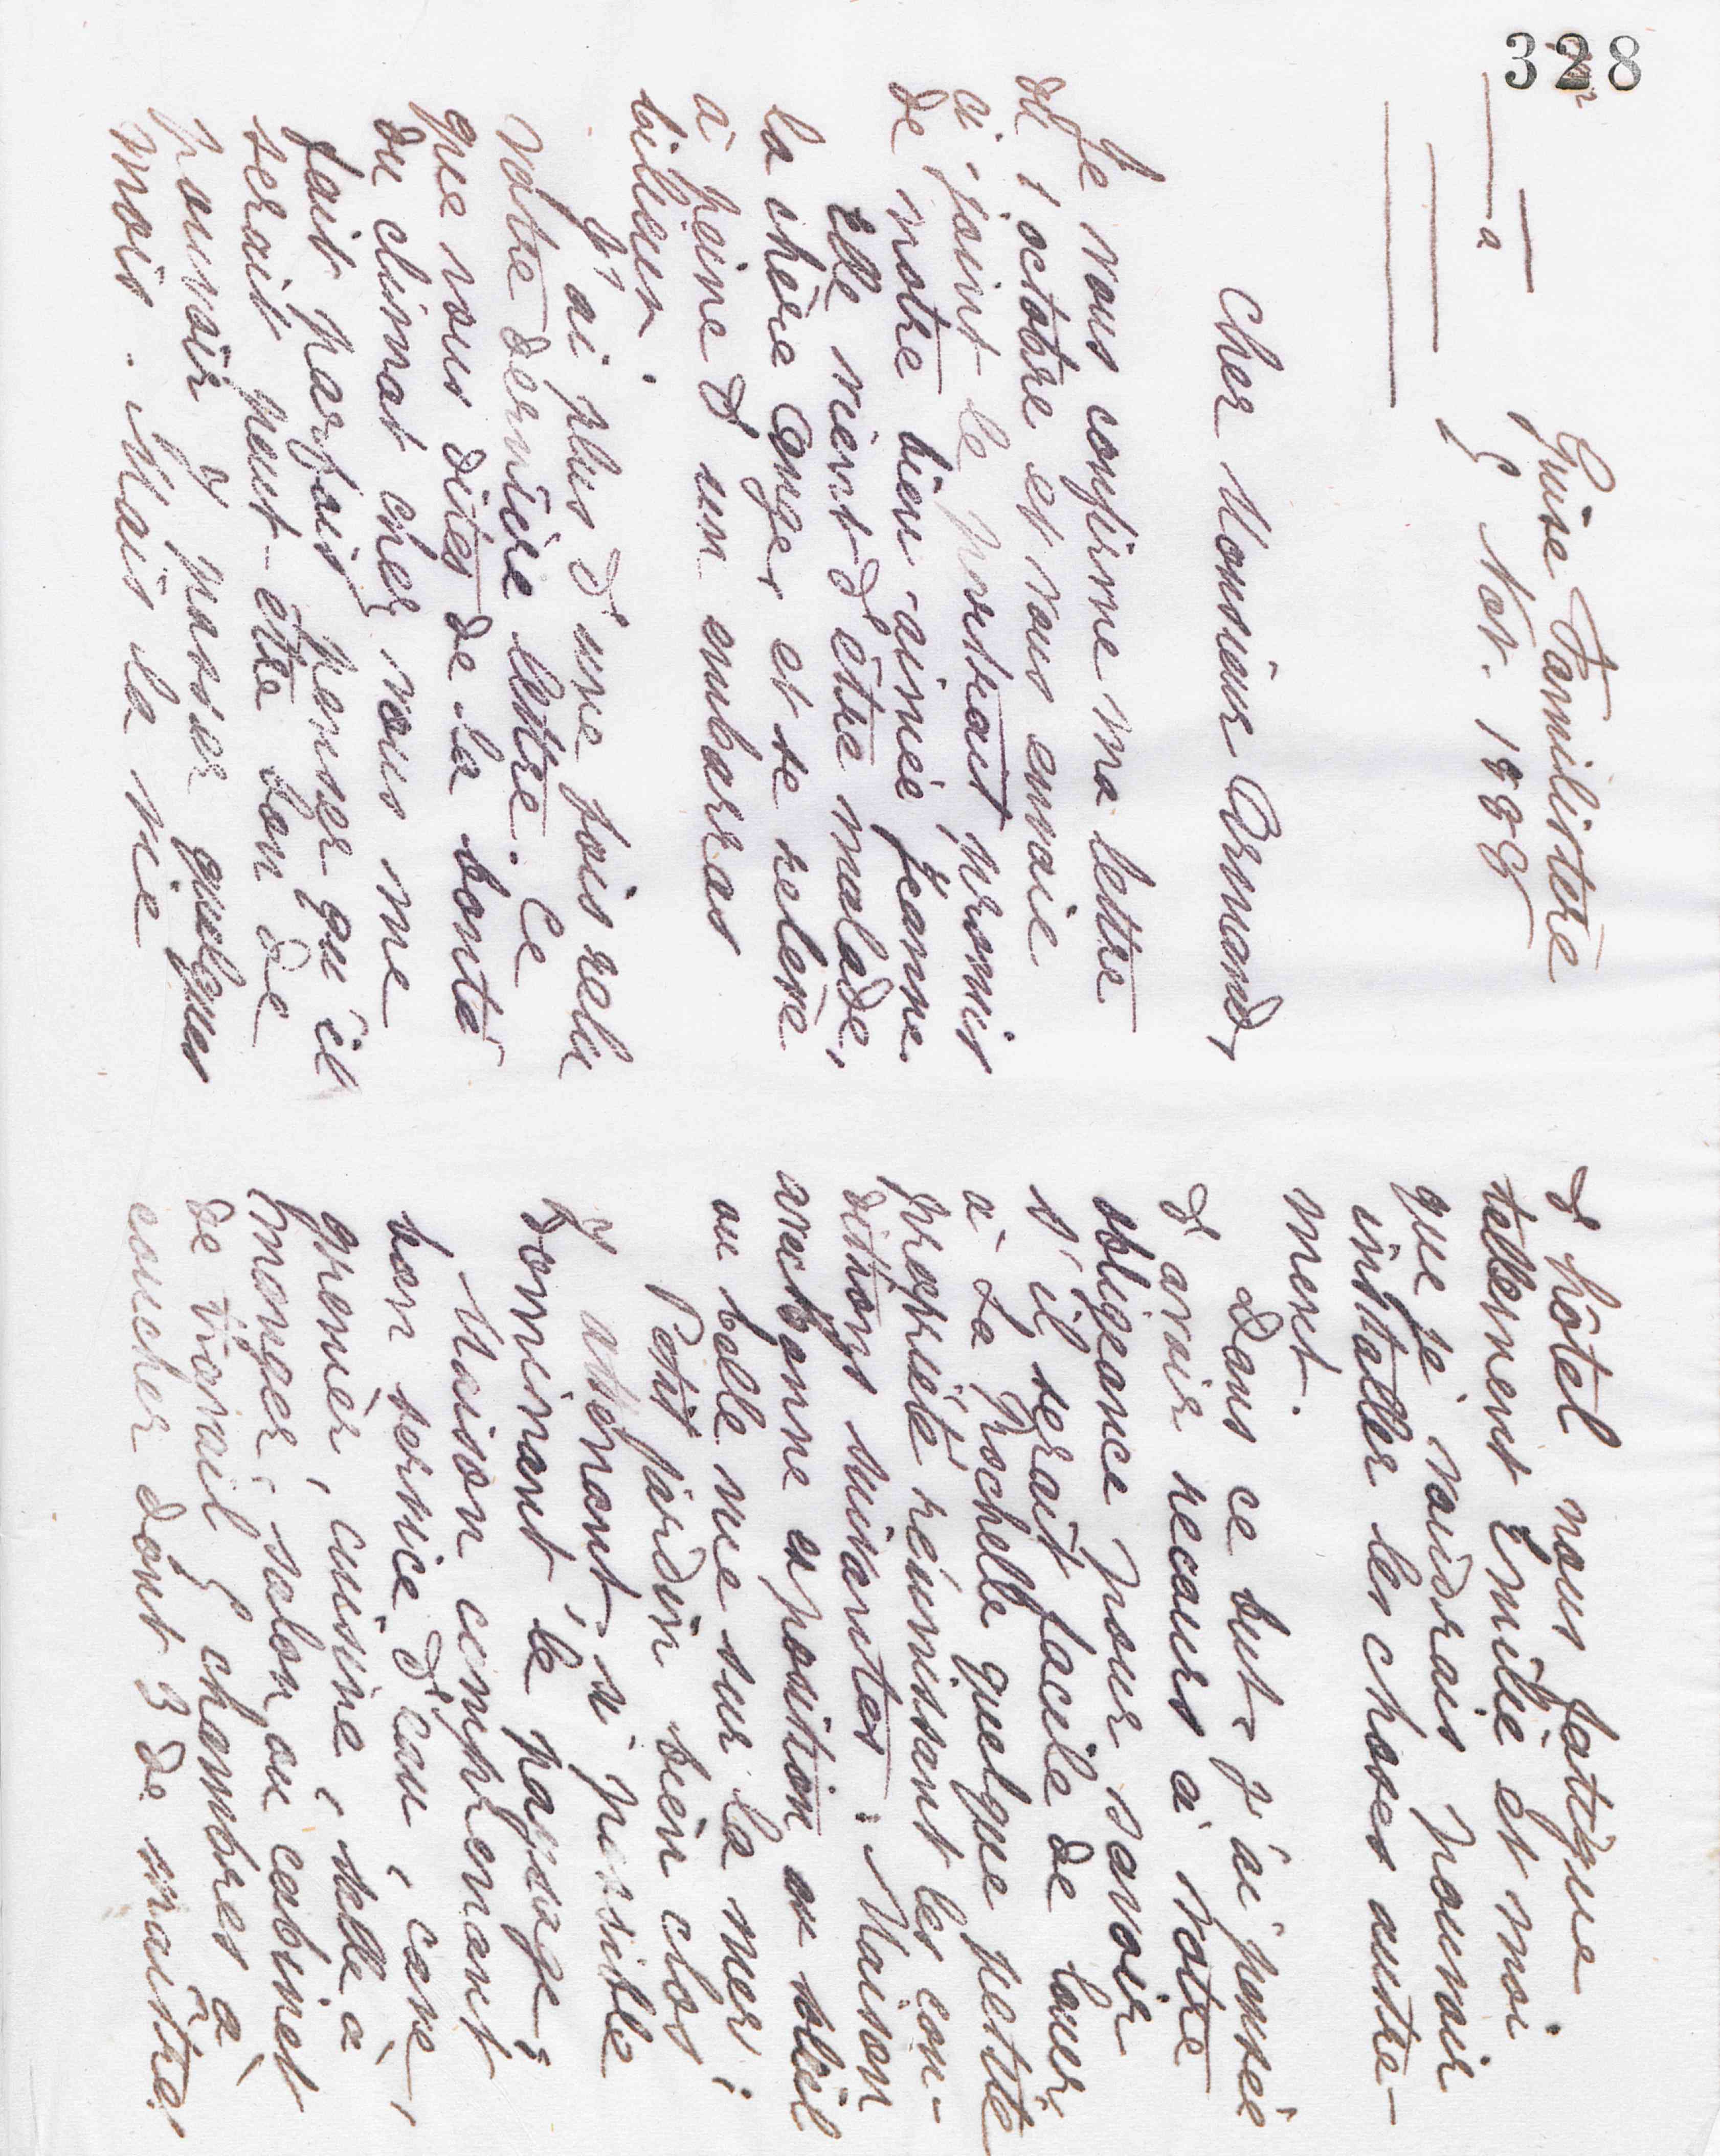 328
Guise Familistère
5 Nov. 1886
Cher Monsieur Armand,
Je vous confirme ma lettre
du 1 octobre et vous envoie
ci-joint le portrait promis
de notre bien-aimée Jeanne.
Elle vient d'être malade,
la chère ange, et se relève
à peine d'un embarras
bilieux.
J'ai plus d'une fois relu
votre dernière lettre. Ce
que vous dites de la bonté
du climat chez vous me
fait parfois penser qu'il
serait peut-être bon de
pouvoir y passer quelques
mois. Mais la vie
d'hôtel nous fatigue
tellement Emilie et moi
que je voudrais pouvoir
installer les choses autre-
ment.
Dans ce but, j'ai pensé
d'avoir recours à votre
obligeance pour savoir
s'il serait facile de louer
à La Rochelle quelque petite
propriété réunissant les con-
ditions suivantes : Maison
avec bonne exposition au soleil
ou belle vue sur la mer ;
Petit jardin bien clos
y attenant, si possible
dominant le paysage ;
Maison comprenant
bon service d'eau, cave,
grenier, cuisine, salle à
manger, salon ou cabinet
de travail, 5 chambres à
coucher dont 3 de maîtres